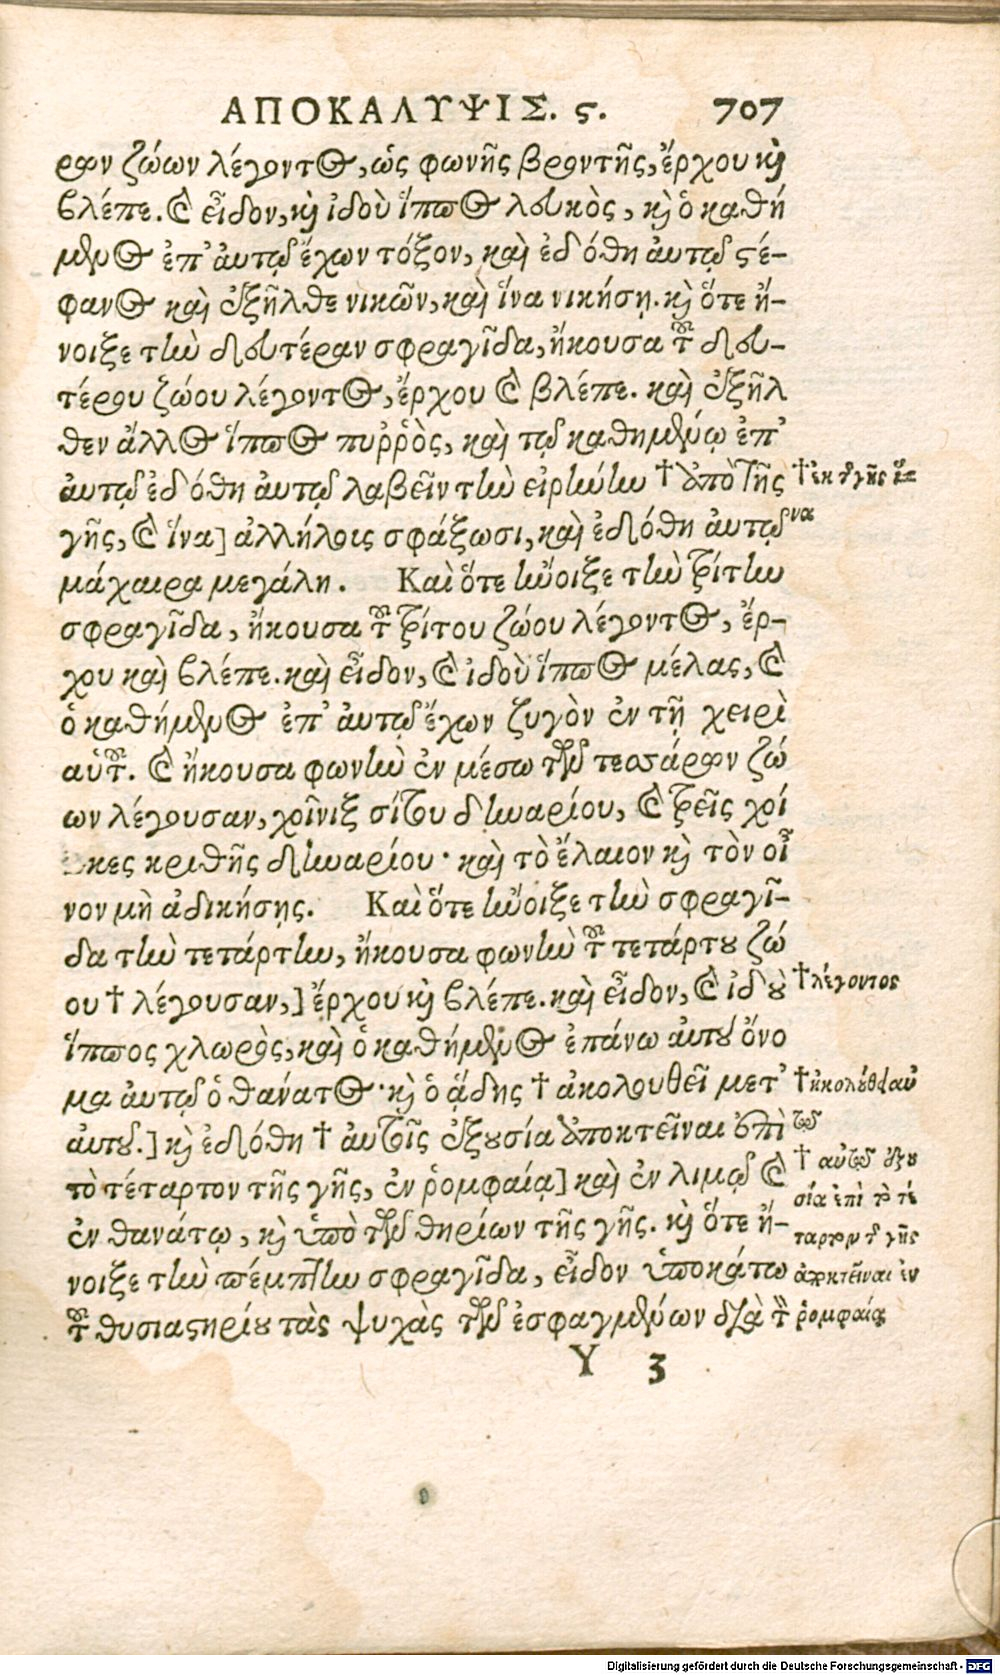 ΑΠΟΚΑΛΥΨΙΣ. ς. 707
ρων ζώων λέγοντος, ὡς φωνῆς βροντῆς, ἔρχου καὶ
βλέπε. καὶ εἶδον, καὶ ἰδοὺ ἵππος λευκὸς, καὶ ὁ καθή
μενος ἐπ' ἀυτῷ ἔχων τόξον, καὶ ἐδόθη ἀυτῷ στέ-
φανος καὶ ἐξῆλθε νικῶν, καὶ ἵνα νικήσῃ. καὶ ὅτε ἤ-
νοιξε τὴν δευτέραν σφραγῖδα, ἤκουσα τοῦ δευ-
τέρου ζώου λέγοντος, ἔρχου καὶ βλέπε. καὶ ἐξῆλ
θεν ἄλλος ἵππος πυῤῥὸς, καὶ τῷ καθημένῳ ἐπ'
ἀυτῷ ἐδόθη ἀυτῷ λαβεῖν τὴν εἰρήνην † ἀπὸ τῆς
γῆς, καὶ ἵνα] ἀλλήλοις σφάξωσι, καὶ ἐδόθη ἀυτῷ
μάχαιρα μεγάλη. Καὶ ὅτε ἤνοιξε τὴν τρίτην
σφραγῖδα, ἤκουσα τοῦ τρίτου ζώου λέγοντος, ἔρ-
χου καὶ βλέπε. καὶ εἶδον, καὶ ἰδοὺ ἵππος μέλας, καὶ
ὁ καθήμενος ἐπ' ἀυτῷ ἔχων ζυγὸν ἐν τῇ χειρὶ
αὑτοῦ. καὶ ἤκουσα φωνὴν ἐν μέσω τῶν τεσσάρων ζώ
ων λέγουσαν, χοῖνιξ σίτου δηναρίου, καὶ τρεῖς χοί
νικες κριθῆς δηναρίου· καὶ τὸ ἔλαιον καὶ τὸν οἶ
νον μὴ ἀδικήσῃς. Καὶ ὅτε ἤνοιξε τὴν σφραγῖ-
δα τὴν τετάρτην, ἤκουσα φωνὴν τοῦ τετάρτου ζώ
ου † λέγουσαν,] ἔρχου καὶ βλέπε. καὶ εἶδον, καὶ ἰδοὺ
ἵππος χλωρὸς, καὶ ὁ καθήμενος ἐπάνω ἀυτοῦ ὄνο
μα ἀυτῷ ὁ θάνατος· καὶ ὁ ᾅδης † ἀκολουθεῖ μετ'
ἀυτοῦ.] καὶ ἐδόθη † ἀυτοῖς ἐξουσία ἀποκτεῖναι ἐπὶ
τὸ τέταρτον τῆς γῆς, ἐν ῥομφαίᾳ] καὶ ἐν λιμῷ καὶ
ἐν θανάτῳ, καὶ ὑπὸ τῶν θηρίων τῆς γῆς. καὶ ὅτε ἤ-
νοιξε τὴν πέμπτην σφραγῖδα, εἶδον ὑποκάτω
τοῦ θυσιαστηρίου τὰς ψυχὰς τῶν ἐσφαγμένων διὰ τὸν
Υ 3
† ἐκ τῆς γῆς ἵ-
να
† λέγοντος
† ἠκολούθει αὐ
τῷ
† αὐτῷ ἐξου
σία ἐπὶ τὸ τέ
ταρτον τῆς γῆς
ἀποκτεῖναι ἐν
ῥομφαίᾳ
Digitalisierung gefördert durch die Deutsche Forschungsgemeinschaft - DFG